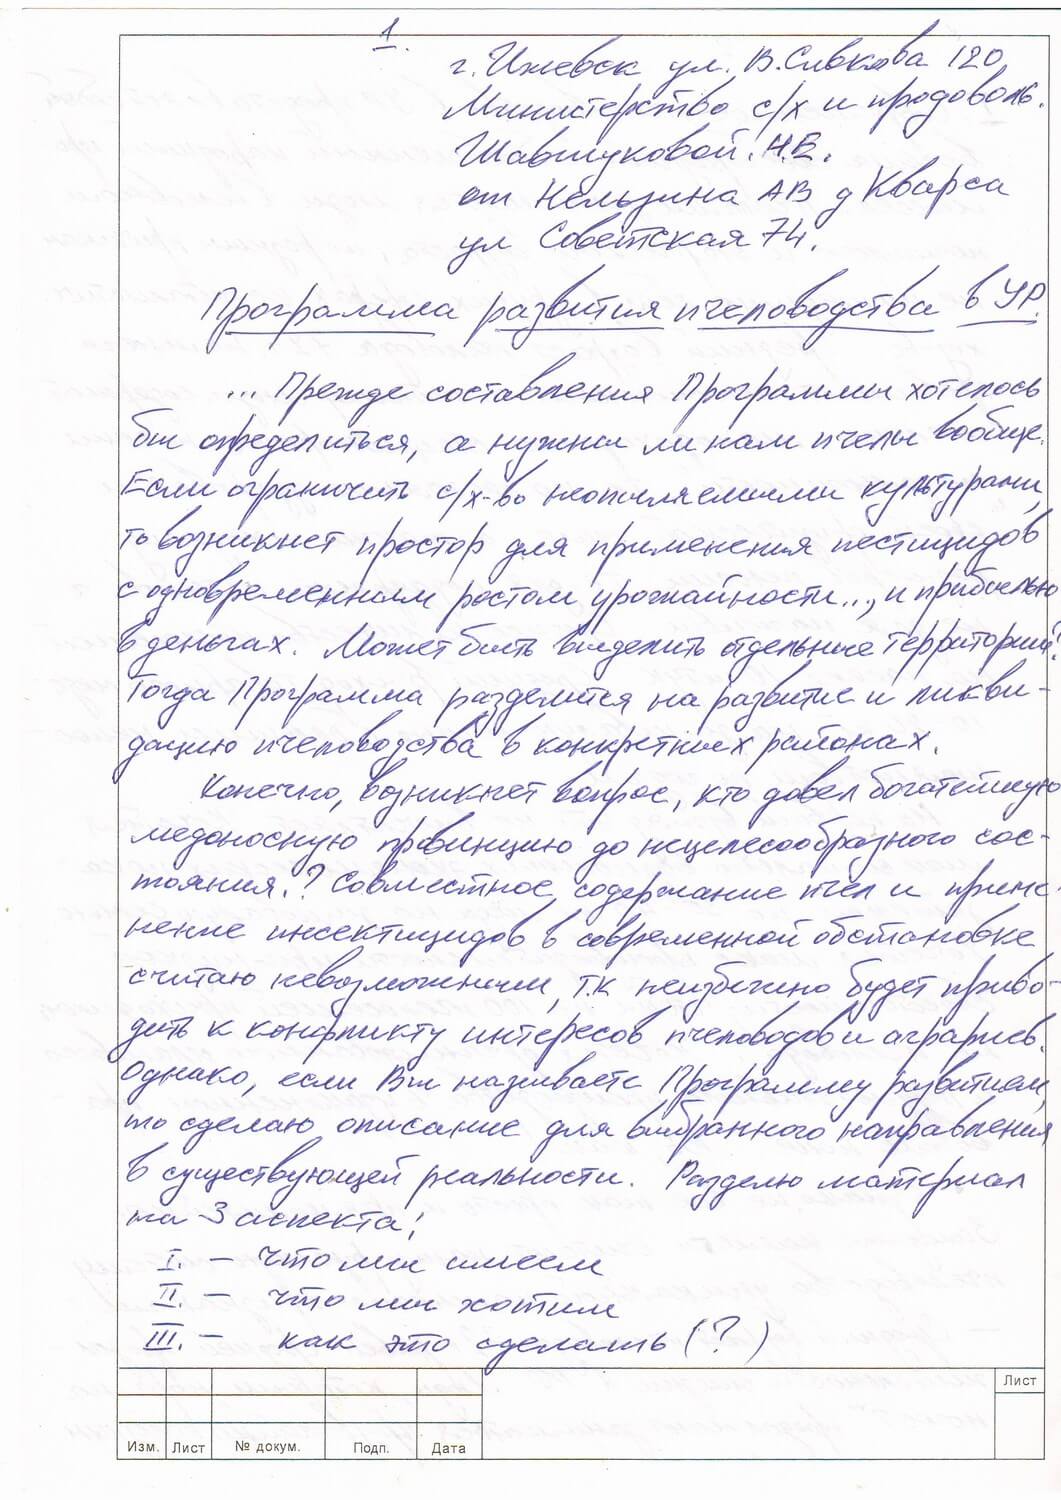 1.
г. Ижевск ул. В.Сивкова 120
Министерство с/х и продоволь.
Шавшуковой. Н.В.
от Нельзина АВ д Кварса
ул Советская 74.
Программа развития пчеловодства в УР.
... Прежде составления Программы хотелось
бы определиться, а нужны ли нам пчелы вообще.
Если ограничить с/х-во неопыляемыми культурами,
то возникнет простор для применения пестицидов
с одновременным ростом урожайности..., и прибылью
в деньгах. Может быть выделить отдельные территории?
Тогда Программа разделится на развитие и ликви-
дацию пчеловодства в конкретных районах.
Конечно, возникнет вопрос, кто довел богатейшую
медоносную провинцию до нецелесообразного сос-
тояния.? Совместное содержание пчел и приме-
нение инсектицидов в современной обстановке
считаю невозможным, т.к неизбежно будет приво-
дить к конфликту интересов пчеловодов и аграриев.
Однако, если Вы называете Программу развитием,
то сделаю описание для выбранного направления
в существующей реальности. Разделю материал
на 3 аспекта:
I. – что мы имеем
II. – что мы хотим
III. – как это сделать (?)
Лист
Изм. Лист № докум. Подп. Дата